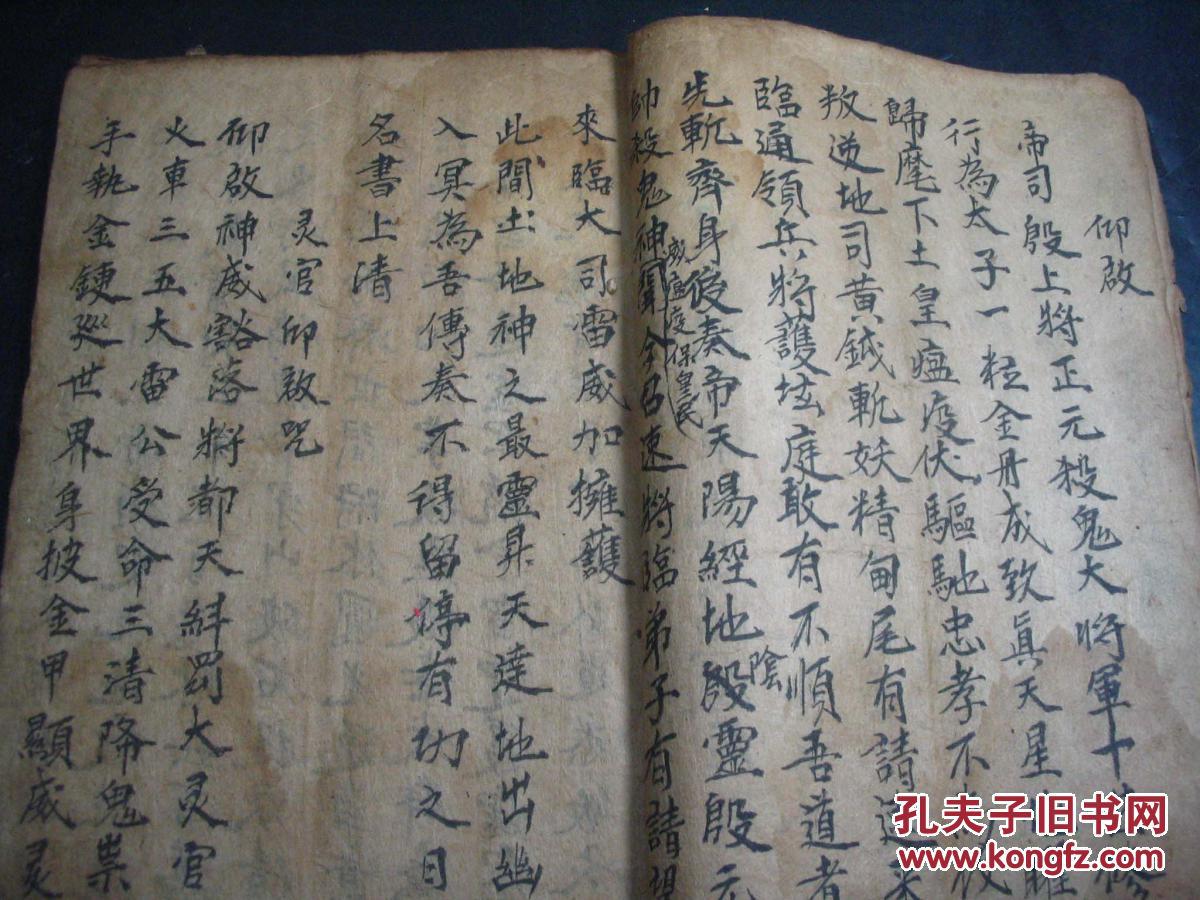 仰啟
帝司殷上將正元殺鬼大將軍十
行為太子一粒金丹成致眞天星
歸麾下土皇瘟疫伏驅馳忠孝不
叛逆地司黃鉞斬妖精甸尾有請速來
臨通領兵將護坛庭敢有不順吾道者
先斬齊身後奏帝天陽經地陰殷靈殷元
滅瘟疫保皇民
帥殺鬼神聞令召速將臨弟子有請望
來臨大司雷威加擁護
此間土地神之最靈昇天達地出幽
入冥為吾傳奏不得留停有功之日
名書上清
灵官仰啟咒
仰啟神威豁落將都天糾罰大灵官
火車三五大雷公受命三清降鬼祟
手執金鍊巡世界身披金甲顯威灵
孔夫子旧书网
www.kongfz.com